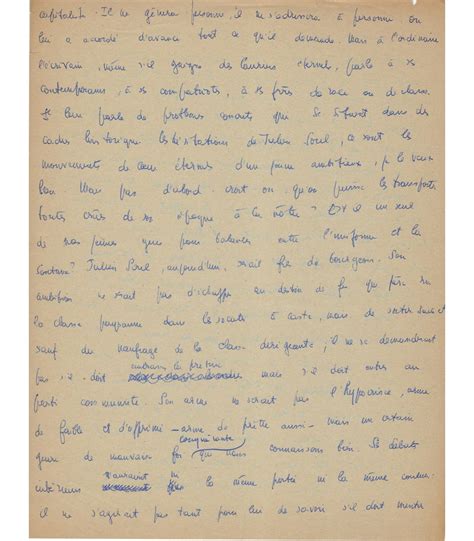 capitalist. Il ne gênera personne, il ne s'adressera à personne on
lui a accordé d'avance tout ce qu'il demande. Mais à l'ordinaire
l'écrivain, même s'il gagne des lauriers éternels, parle à ses
contemporains, à ses compatriotes, à ses frères de race ou de classe.
Il leur parle de problèmes concrets qui se situent dans des
cadres historiques les hésitations de Julien Sorel, ce sont les
mouvements de cœur éternels d'un jeune ambitieux, je le veux
bien. Mais pas d'abord. croit on qu'on puisse les transporter
toutes crûes de son époque à la nôtre? Y a il un seul
de nos jeunes gens pour balancer entre l'uniforme et la
soutane? Julien Sorel, aujourd'hui, serait fils de bourgeois. Son
ambition ne serait pas d'échapper au destin de
la classe paysanne dans la société à caste, mais de sortir sain et
sauf du naufrage de la classe dirigeante; il ne se demanderait
pas s'il doit mais s'il doit entrer au
parti communiste. Son arme ne serait pas l'hypocrisie, arme
de faible et d'opprimé – arme de prêtre aussi – mais un certain
genre de mauvaise foi que nous connaissons bien. Ses débats
intérieurs n'auraient ni la même portée ni la même couleur.
il ne s'agirait pas tant pour lui de savoir s'il doit mentir